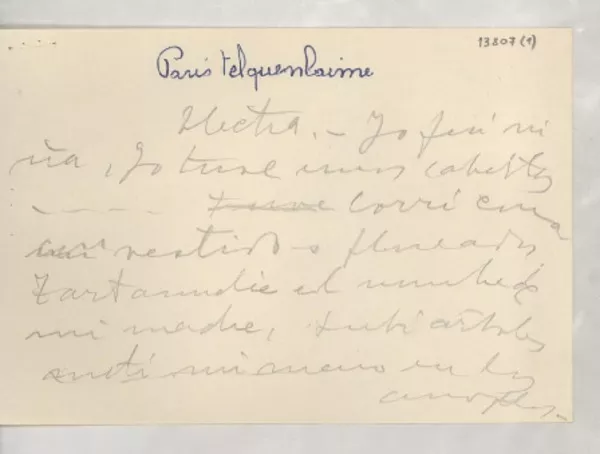 13807 (1)
Paris telquenlaime
Electra. - Yo fui ni
ña, Yo tuve unos cabellos
- - - - Tuve Corrí con
mi vestidos floreados
el
mi madre, subí árboles
metí mi mano en los